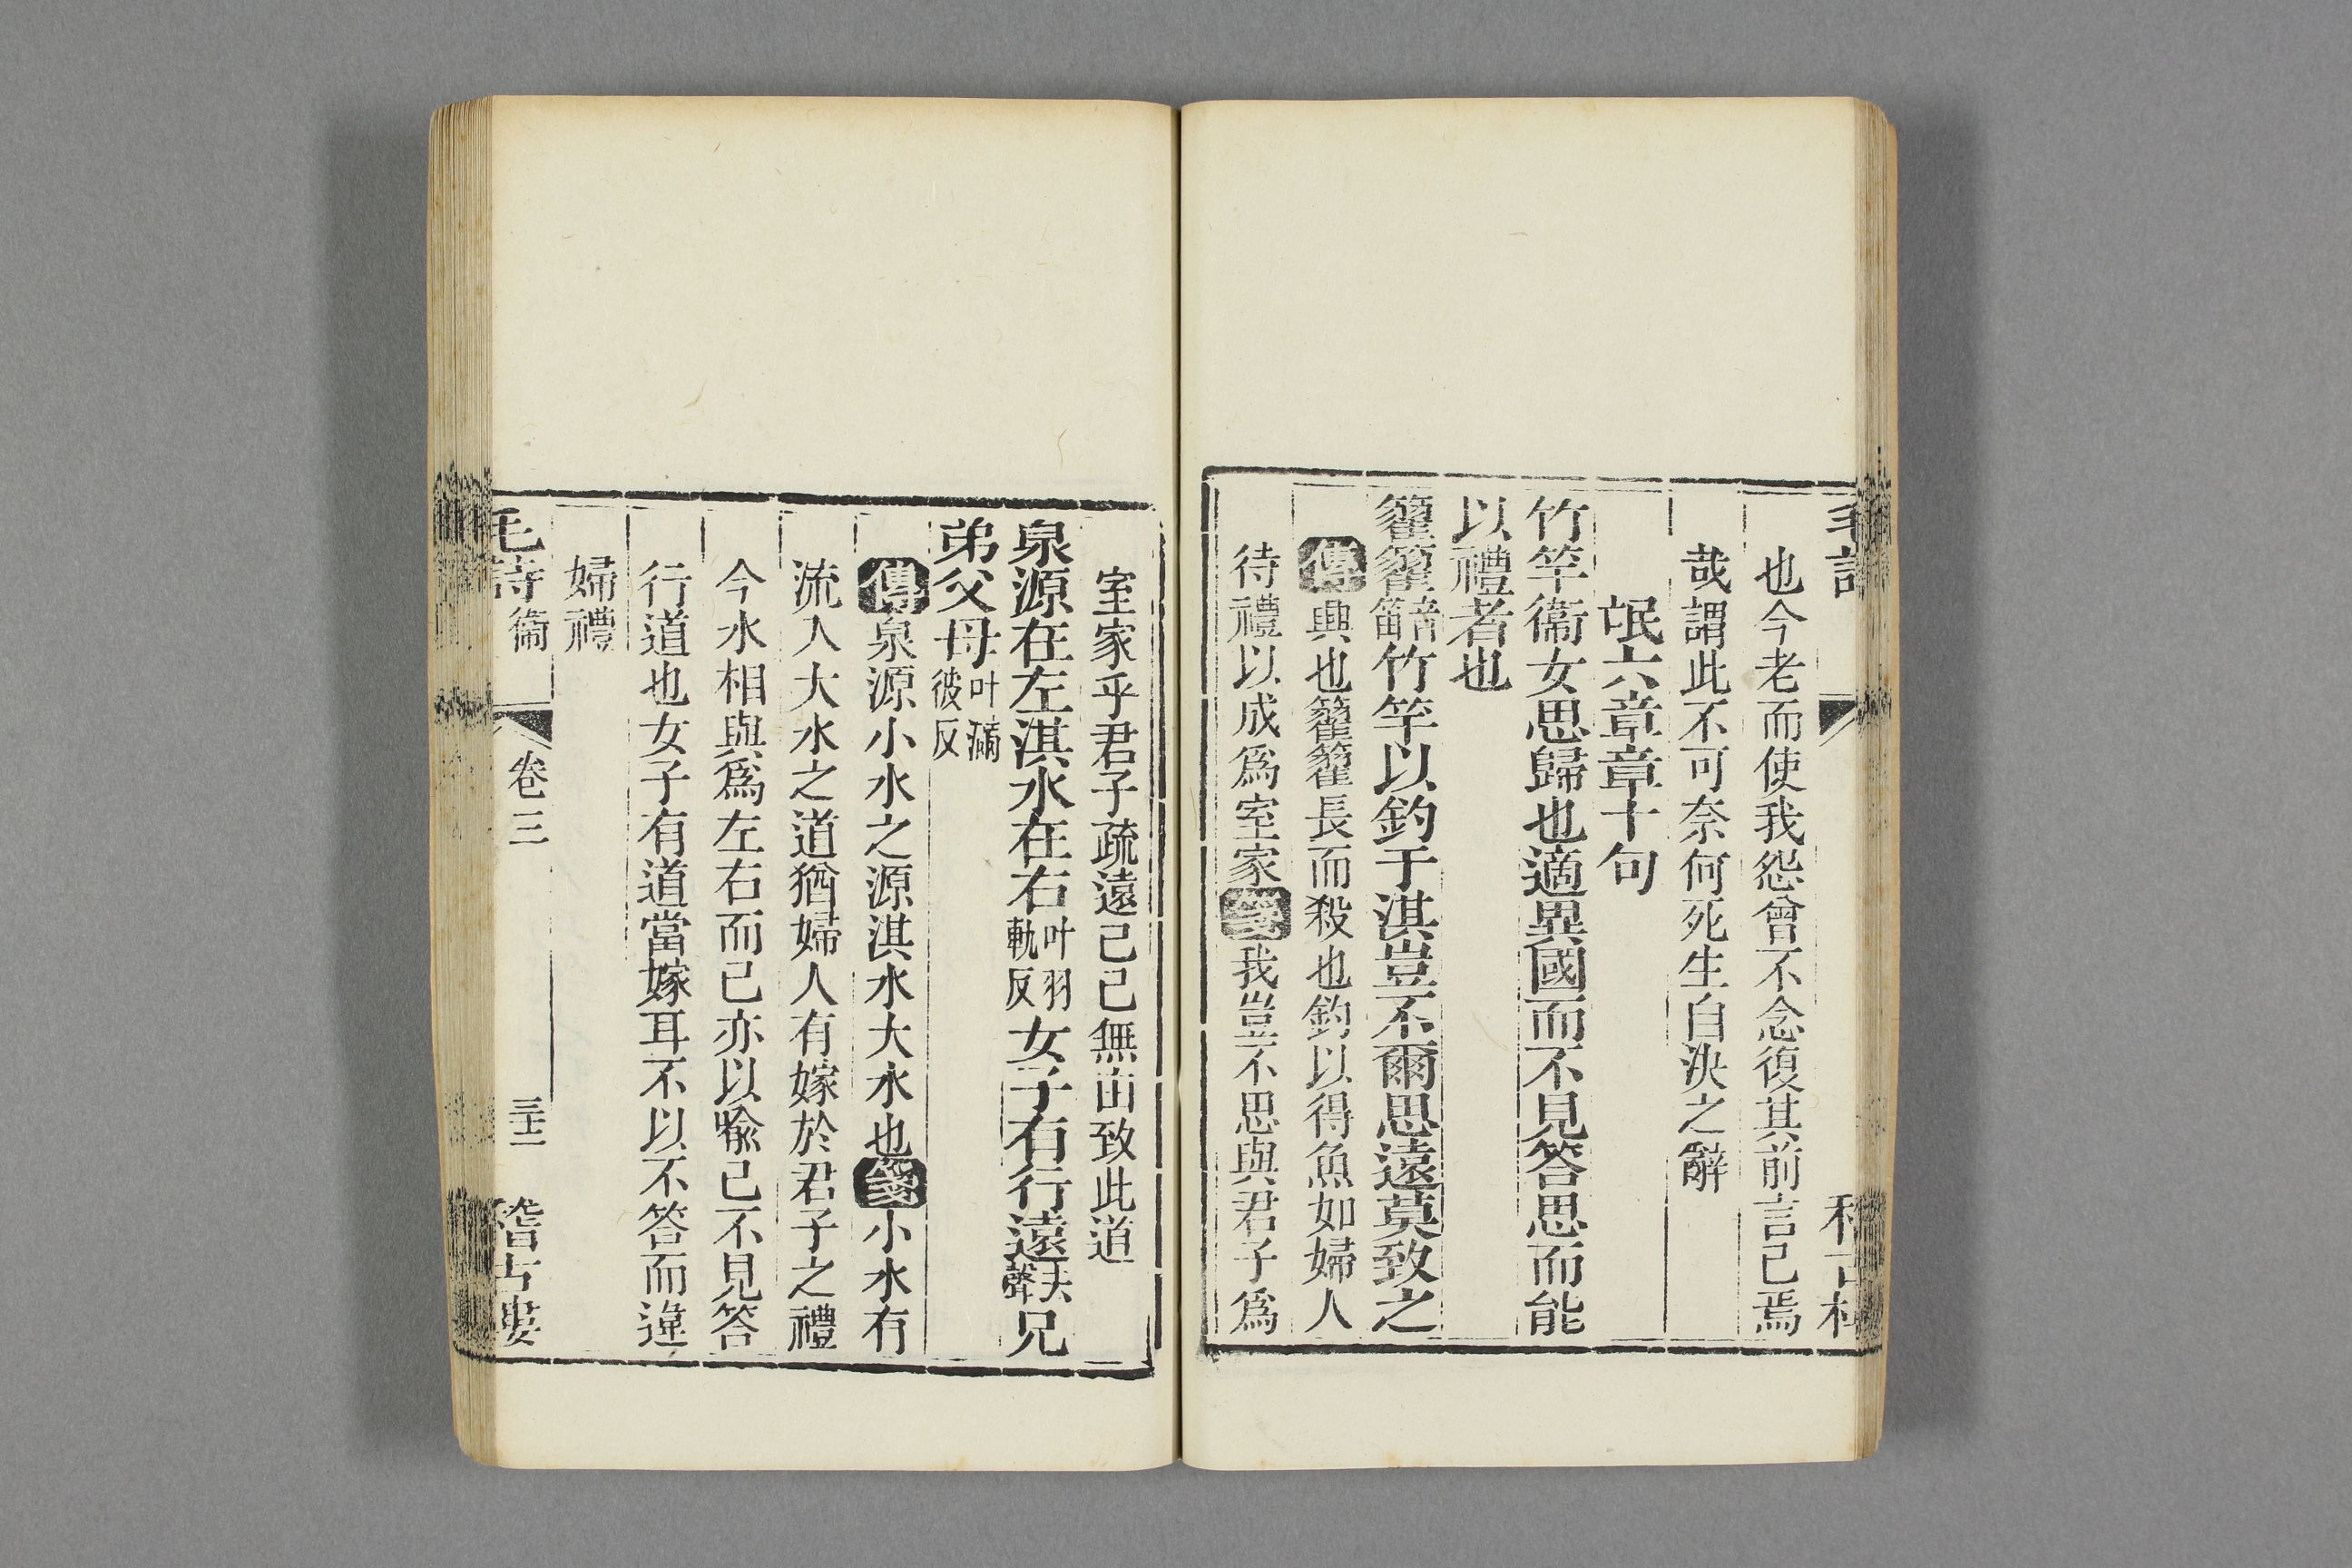 也今老而使我怨曾不念復其前言己焉
哉謂此不可奈何死生自決之辭
氓六章章十句
竹竿衞女思歸也適異國而不見答思而能
以禮者也
籊籊籊竹竿以釣于淇豈不爾思遠莫致之
傳興也籊籊長而殺也釣以得魚如婦人
待禮以成爲室家箋我豈不思與君子爲
室家乎君子疏遠己己無由致此道
泉源在左淇水在右叶羽軌反女子有行遠去聲兄
弟父母叶滿彼反
傳泉源小水之源淇水大水也箋小水有
流入大水之道猶婦人有嫁於君子之禮
今水相與爲左右而己亦以喻己不見答
行道也女子有道當嫁耳不以不答而違
婦禮
毛詩 衞 卷三 三十二 稽古樓